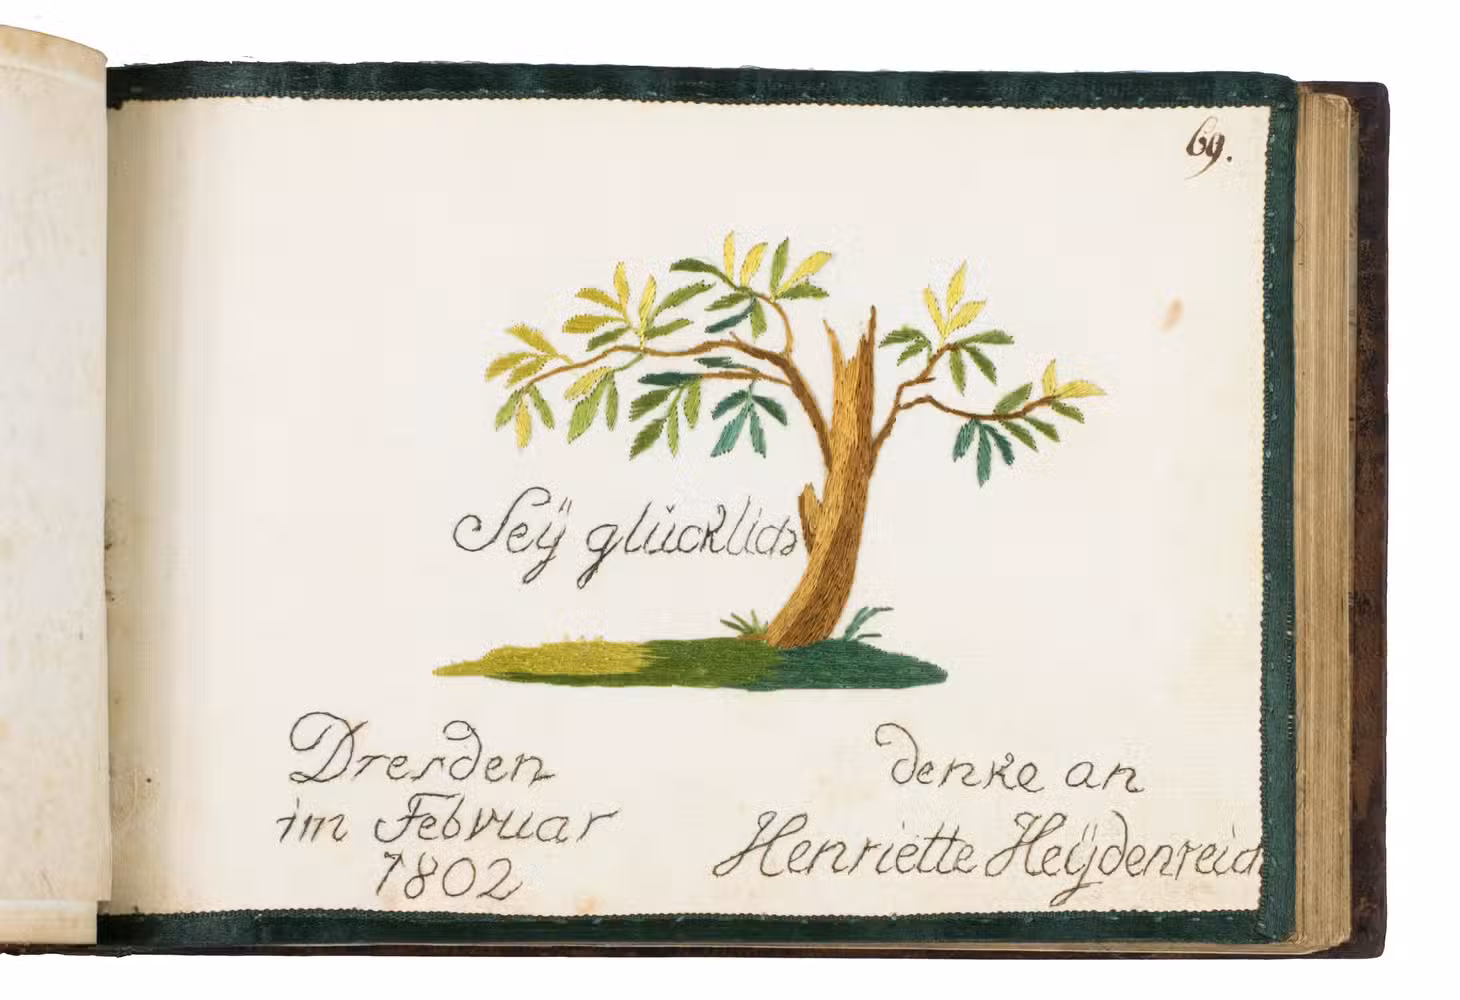 69.
Seÿ glücklich
Dresden
im Februar
1802
denke an
Henriette Heÿdenreich